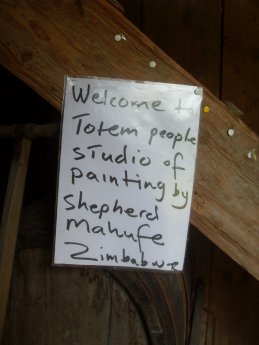 Welcome to
Totem people
studio of
painting by
Shepherd
Mahufe
Zimbabwe